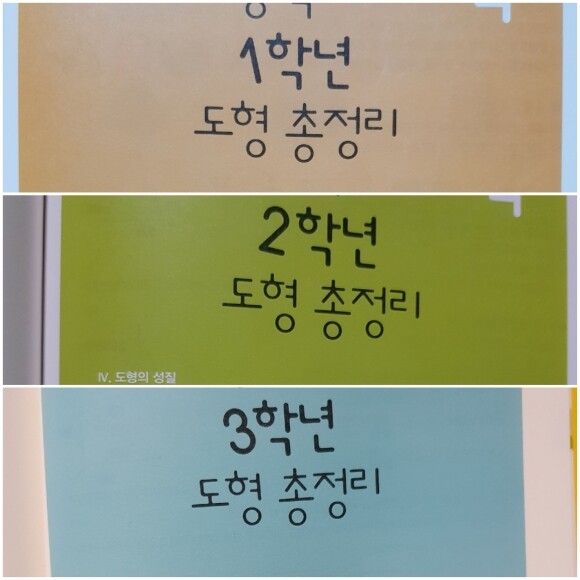 1학년
도형 총정리
2학년
도형 총정리
Ⅳ. 도형의 성질
3학년
도형 총정리